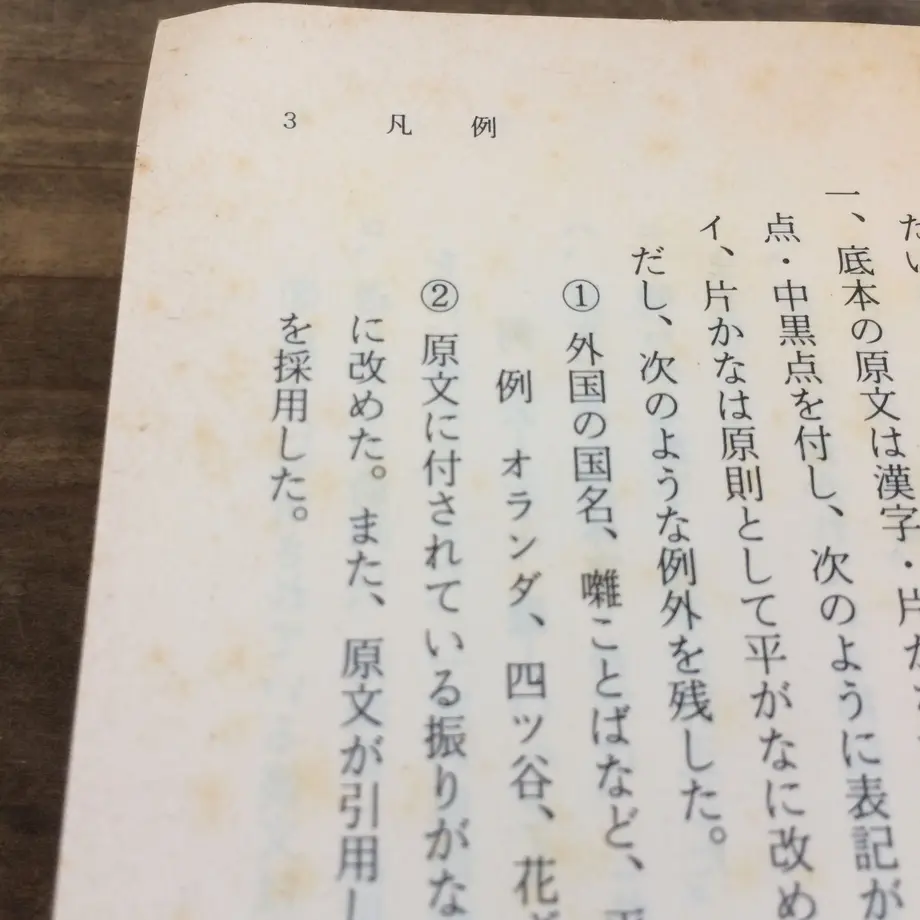 3 凡例
たい
一、底本の原文は漢字・片か
点・中黒点を付し、次のように表記が
イ、片かなは原則として平がなに改め
だし、次のような例外を残した。
① 外国の国名、囃ことばなど、平
例 オランダ、四ッ谷、花
② 原文に付されている振りがな
に改めた。また、原文が引用し
を採用した。